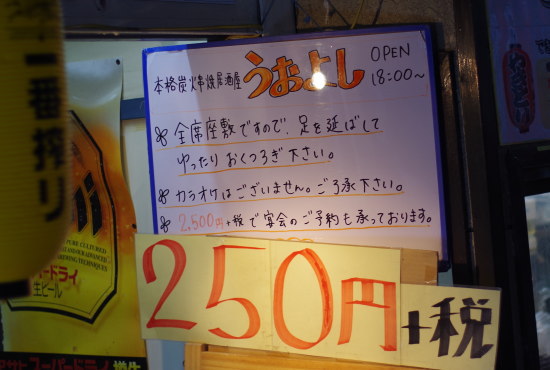 一番搾り
本格炭火串焼居酒屋 うおよし OPEN 18:00～
全席座敷ですので、足を延ばして
ゆったりおくつろぎ下さい。
カラオケはございません。ご了承下さい。
2,500円+税で宴会のご予約も承っております。
250円+税
生ビール
アサヒスーパードライ 樽生